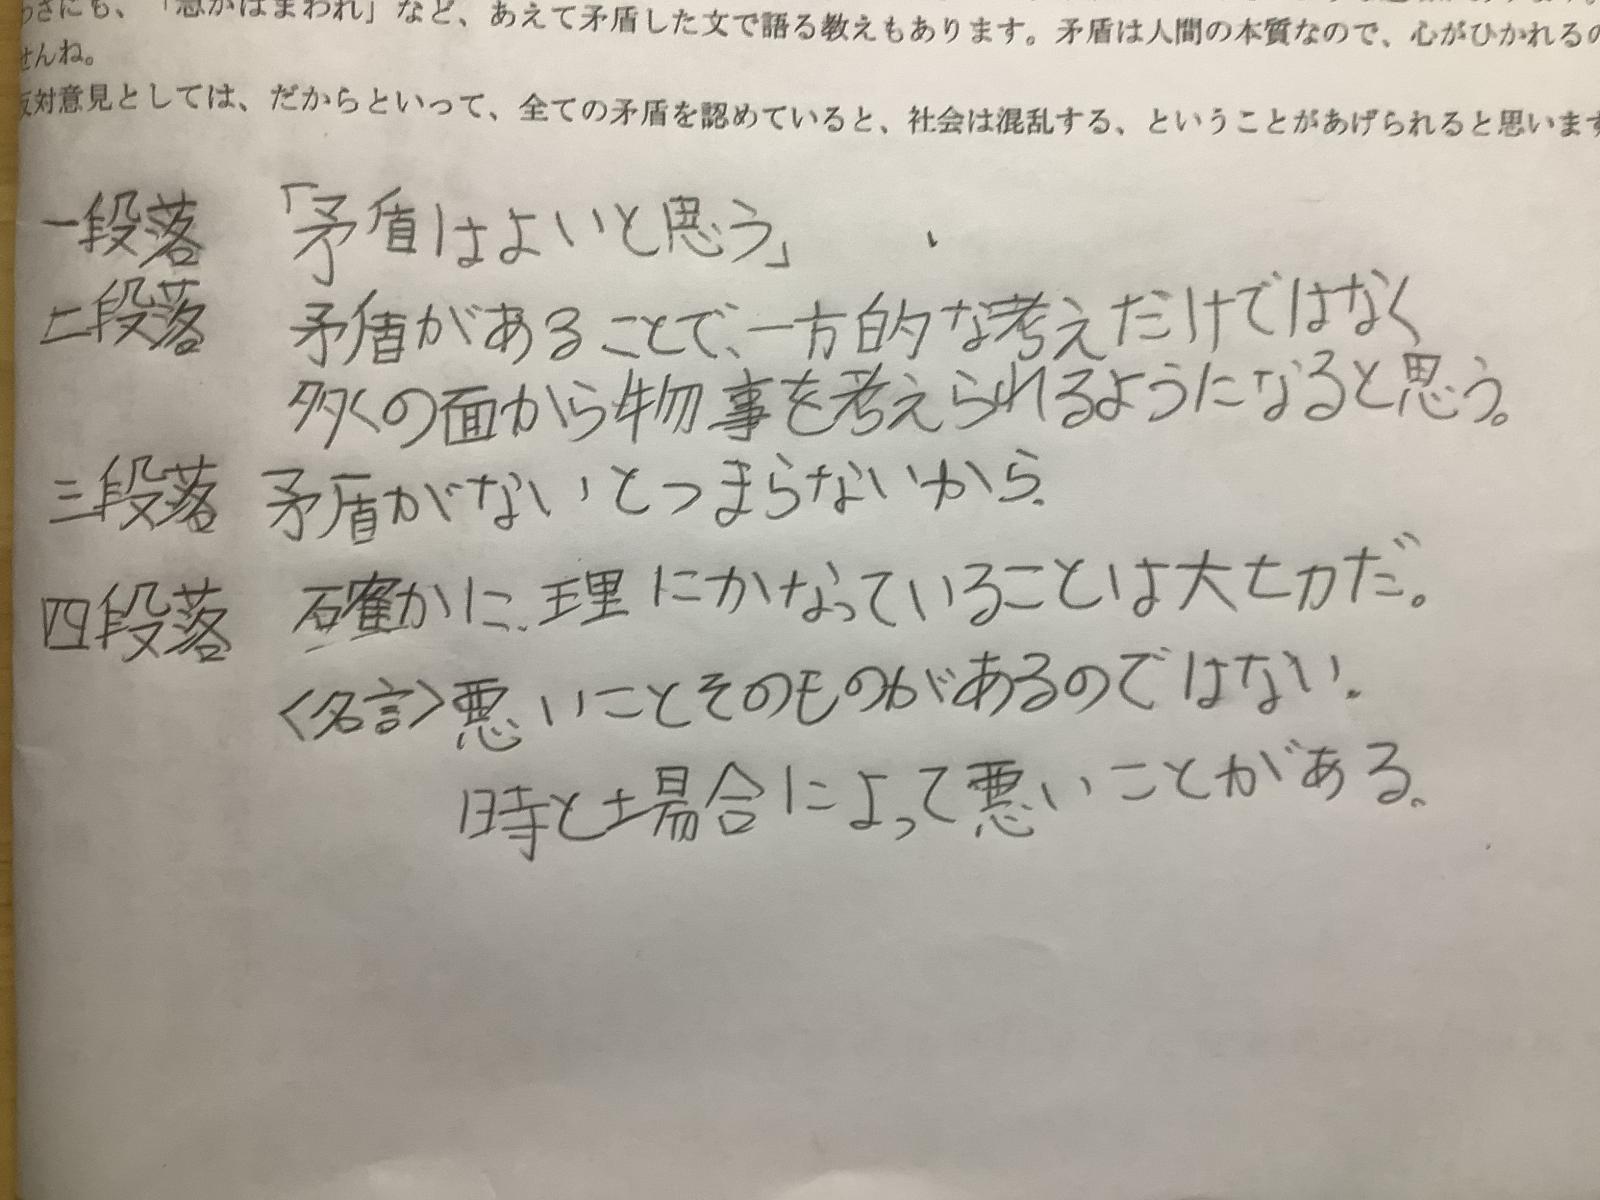 わざにも、「急がばまわれ」など、あえて矛盾した文で語る教えもあります。矛盾は人間の本質なので、心がひかれるの
せんね。
反対意見としては、だからといって、全ての矛盾を認めていると、社会は混乱する、ということがあげられると思います
一段落 「矛盾はよいと思う」
二段落 矛盾があることで、一方的な考えだけではなく
多くの面から物事を考えられるようになると思う。
三段落 矛盾がないとつまらないから。
四段落 確かに、理にかなっていることは大七刀だ。
<名言>悪いことそのものがあるのではない。
時と場合によって悪いことがある。